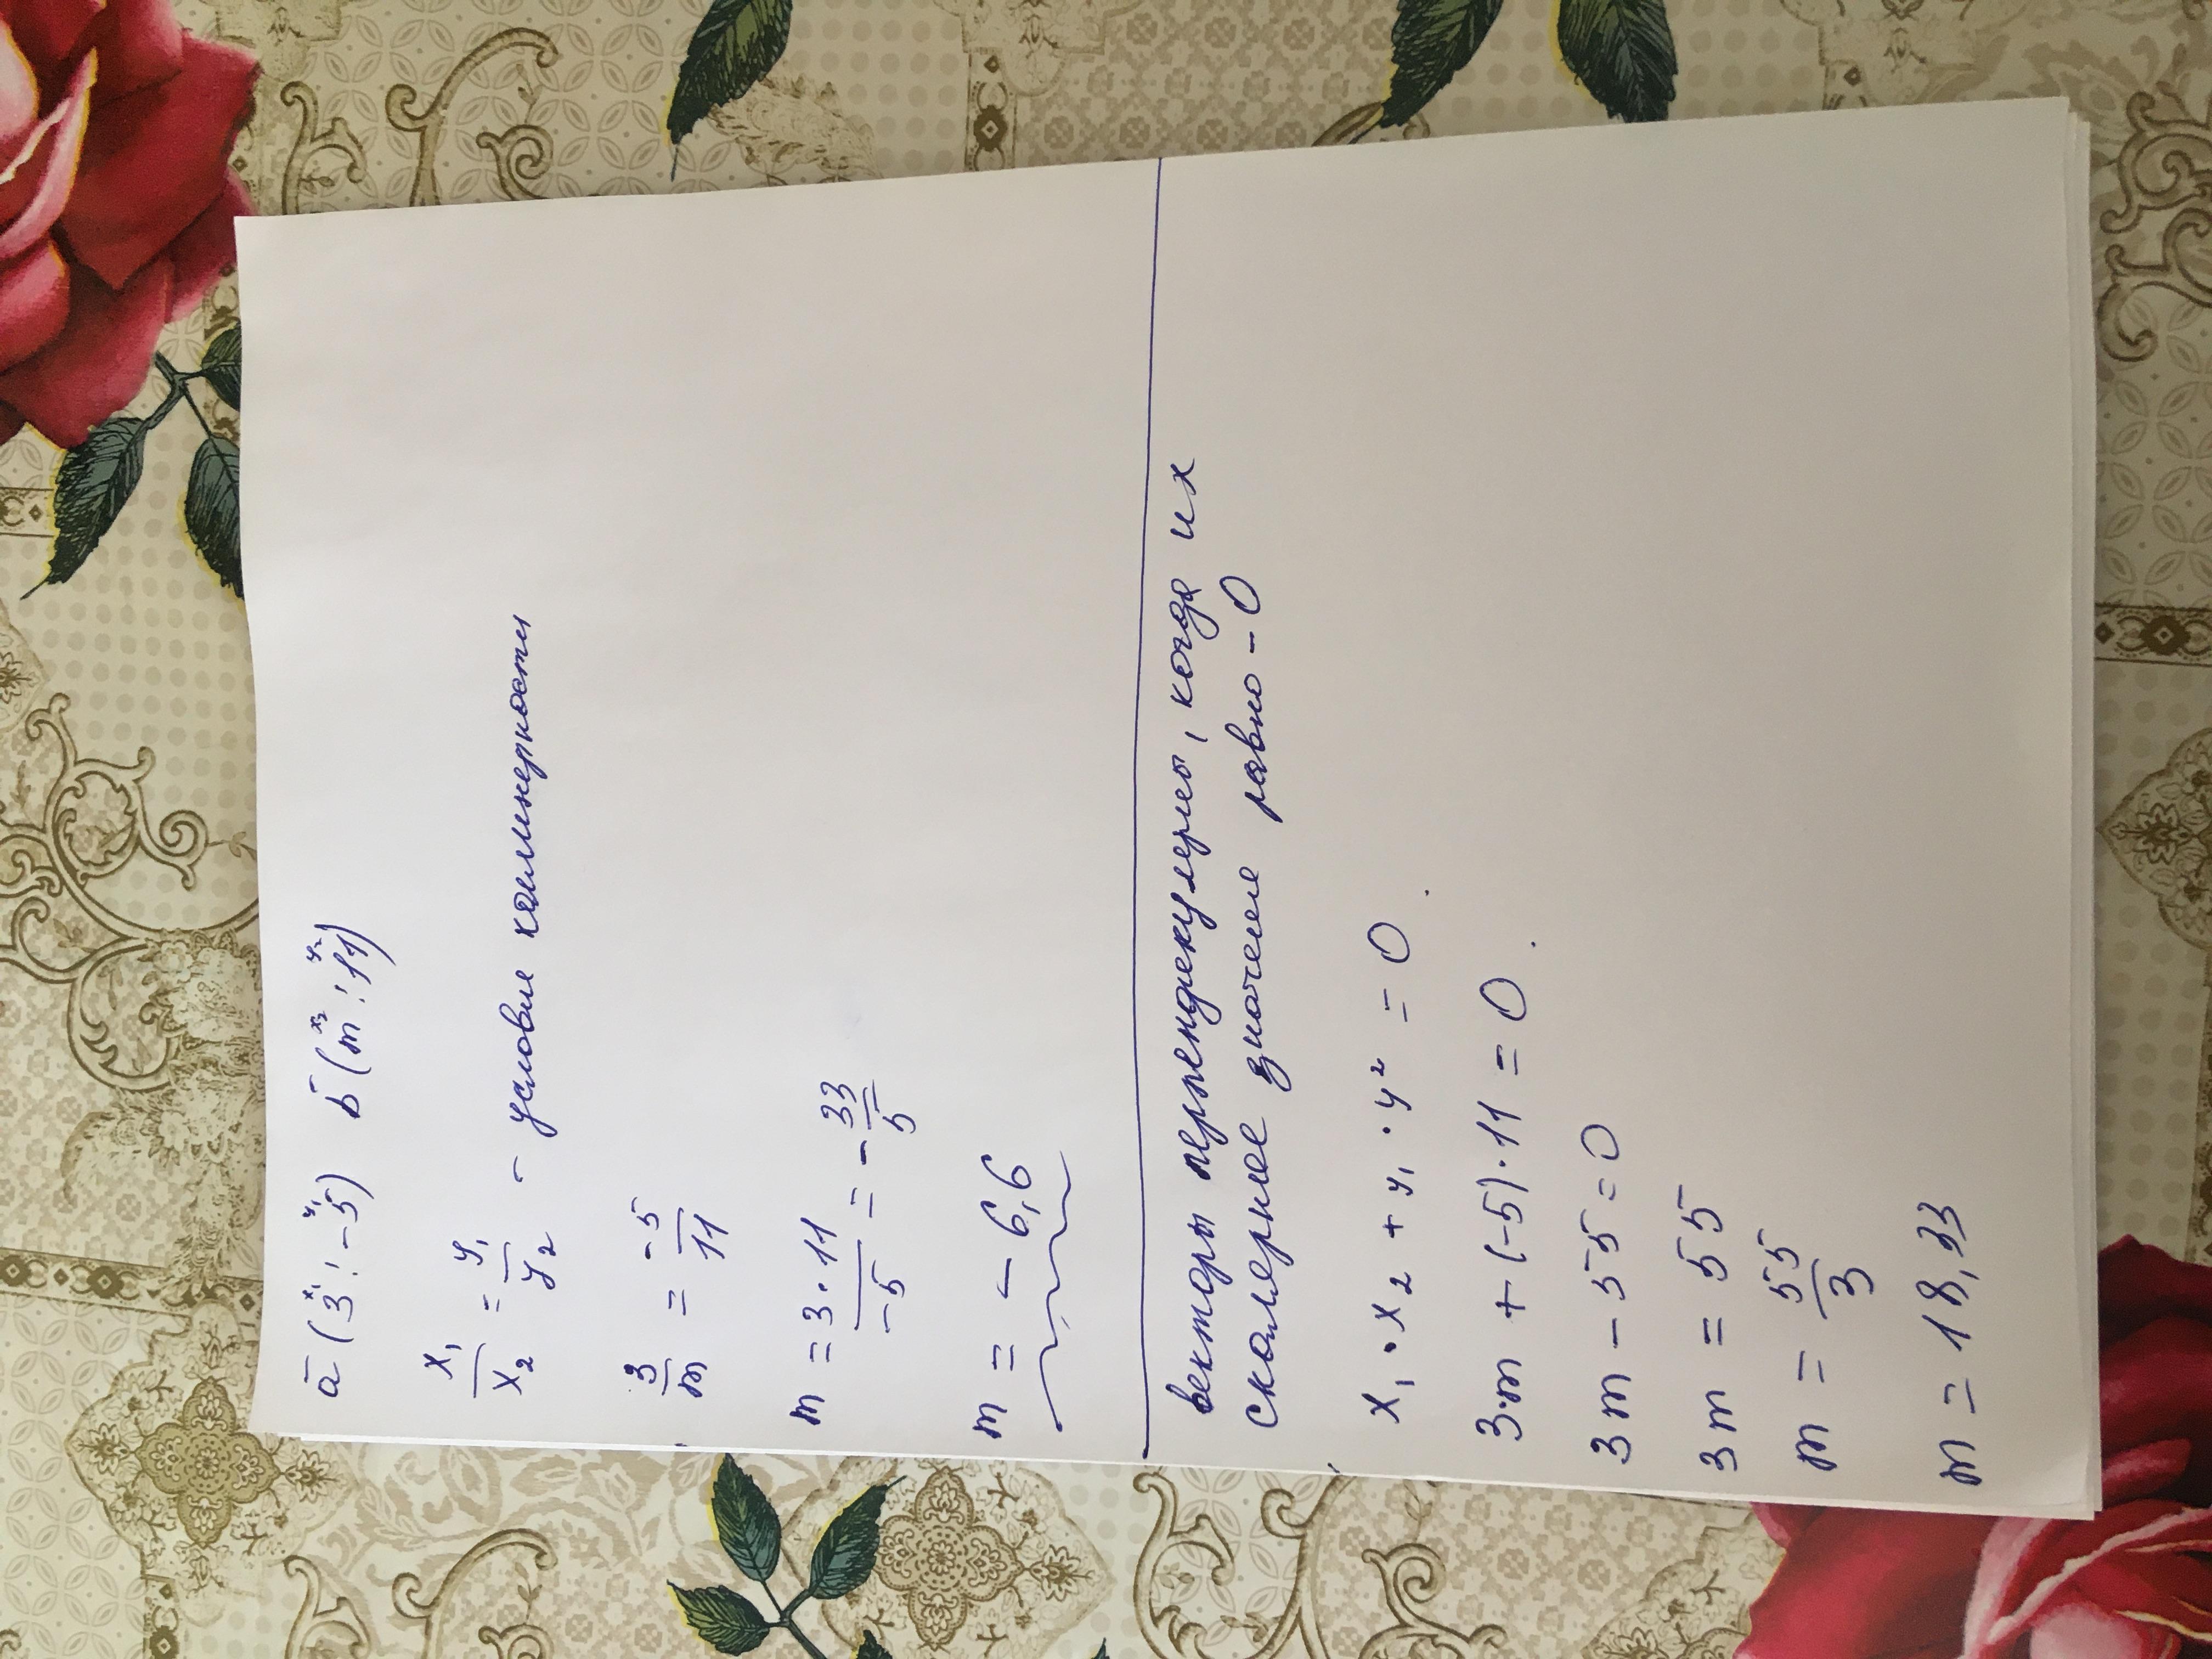 a̅ (3 ; -5) b̅ (m ; 11)
x₁/x₂ = y₁/y₂ - условие коллинерности
3/m = -5/11
m = 3·11/-5 = - 33/5
m = - 6,6
векторы перпендекулярны, когда их
скалярное значение равно - 0
x₁ · x₂ + y₁ · y² = 0
3·m + (-5)·11 = 0
3m - 55 = 0
3m = 55
m = 55/3
m = 18,33